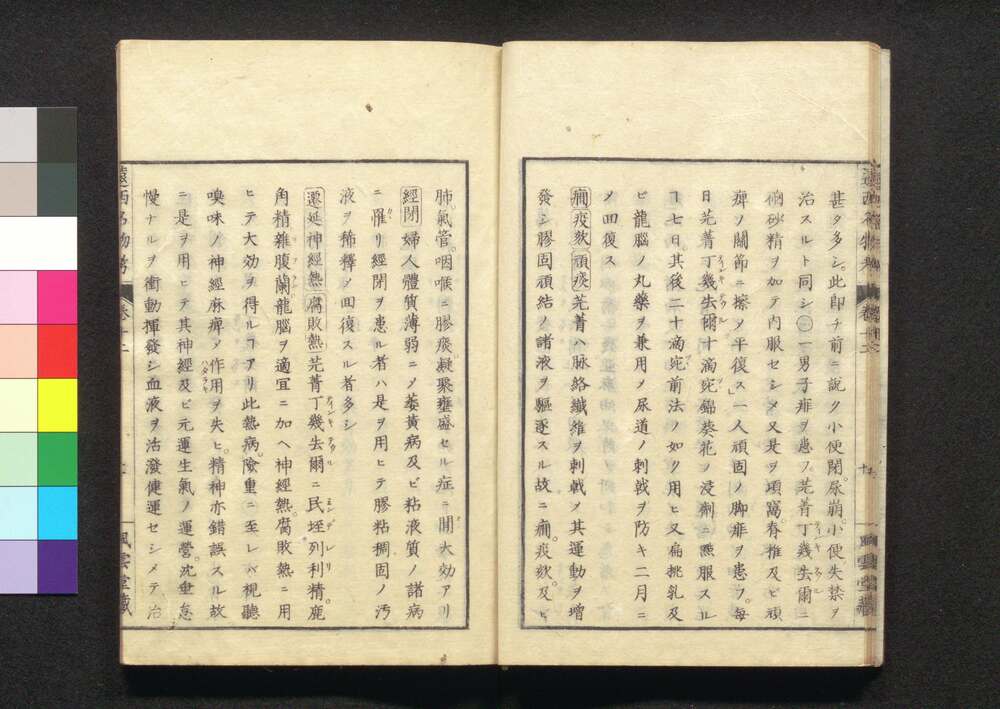 甚タ多シ。此即チ前ニ説ク小便閉。尿崩。小便失禁ヲ
治スルト同シ○一男子痱ヲ患フ。芫菁丁幾去爾ニ
砂精ヲ加テ内服セシメ又是ヲ項窩。脊椎及ビ頑
痺ノ關節ニ擦メ平復ス」一人頑固ノ脚痱ヲ患フ。毎
日芫菁丁幾去爾十滴宛錦葵花ノ浸劑ニ點服スル
ヿ七日其後二十滴宛前法ノ如ク用ヒ又扁桃乳及
ビ龍腦ノ丸藥ヲ兼用メ尿道ノ刺戟ヲ防キ二月ニ
メ回復ス
癎疫欬 頑痰 芫菁ハ脉絡纖維ヲ刺戟メ其運動ヲ增
發シ膠固頑結ノ諸液ヲ驅逐スル故ニ癎。疫欬。及ヒ
肺。氣管。咽喉ニ膠痰凝聚壅盛セル症ニ用大効アリ
經閉 婦人體質薄弱ニメ萎黃病及ビ粘液質ノ諸病
ニ罹リ經閉ヲ患ル者ハ是ヲ用ヒテ膠粘稠固ノ汚
液ヲ稀釋メ回復スル者多シ
遷延神經熱 腐敗熱 芫菁丁幾去爾ニ民垤列利精。鹿
角精雜腹蘭龍腦ヲ適宜ニ加ヘ神經熱。腐敗熱ニ用
ヒテ大効ヲ得ルヿアリ此熱病。險重ニ至レバ視聽
嗅味ノ神經麻痺メ作用ヲ失ヒ。精神亦錯誤スル故
ニ是ヲ用ヒテ其神經及ビ元運生氣ノ運營。沈重怠
慢ナルヲ衝動揮發シ血液ヲ活潑健運セシメテ治
遠西名物考 卷十二
風雲堂藏